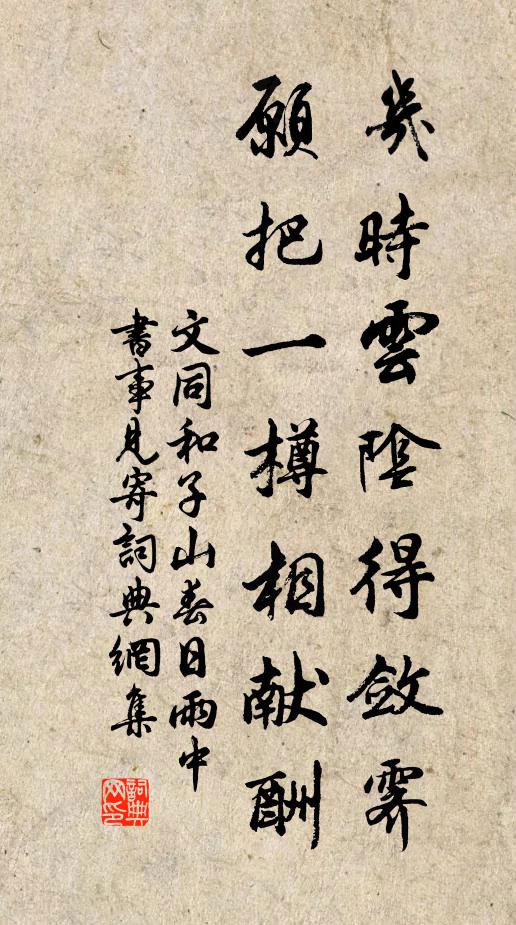 幾時雲陰得斂霽
願把一樽相献酬
文同和子山春日雨中
書事見寄詞典網集
詞典網印